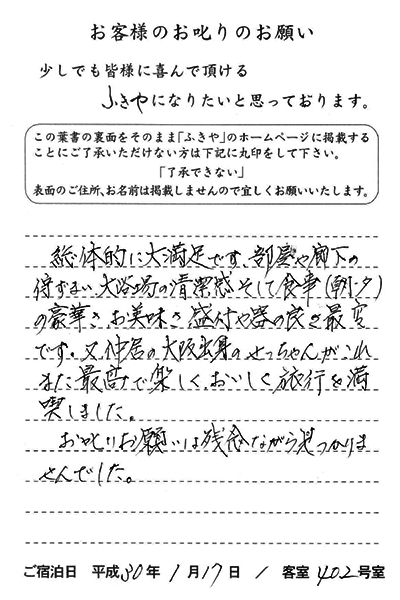 お客様のお叱りのお願い
少しでも皆様に喜んで頂ける
ふきやになりたいと思っております。
この葉書の裏面をそのまま「ふきや」のホームページに掲載する
ことにご了承いただけない方は下記に丸印をして下さい。
「了承できない」
表面のご住所、お名前は掲載しませんので宜しくお願いいたします。
総体的に大満足です、部屋や廊下の
佇まい、大浴場の清潔感、そして食事(朝・夕)
の豪華さ、お美味さ、盛付や器の良さ最高
です。又、仲居の大阪出身のせっちゃんがこれ
また最高で楽しく、おいしく旅行を満
喫しました。
お叱りお願いは残念ながら見つかりま
せんでした。
ご宿泊日 平成30年 1月17日 / 客室 402号室